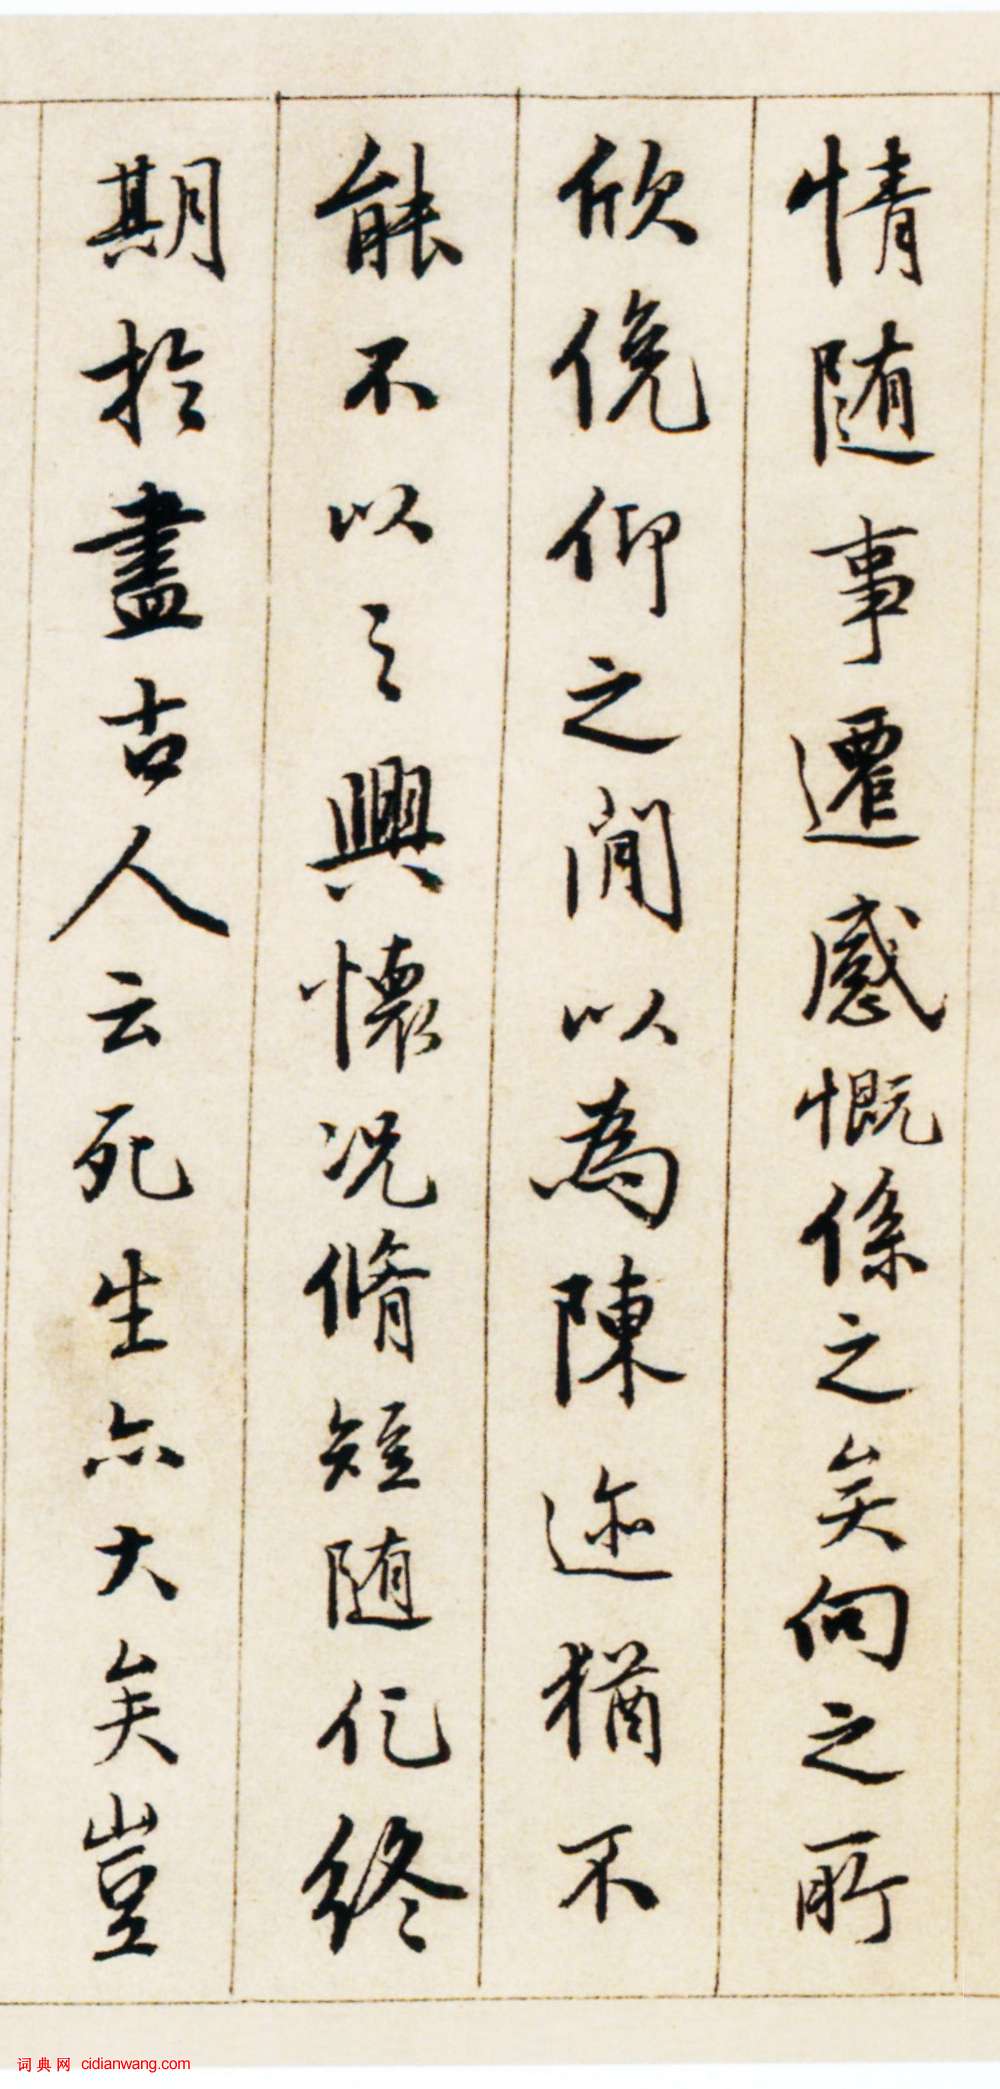 情随事遷感慨係之矣向之所
欣俛仰之閒以為陳迹猶不
能不以之興懷况脩短随化終
期於盡古人云死生亦大矣豈
词典网 cidianwang.com